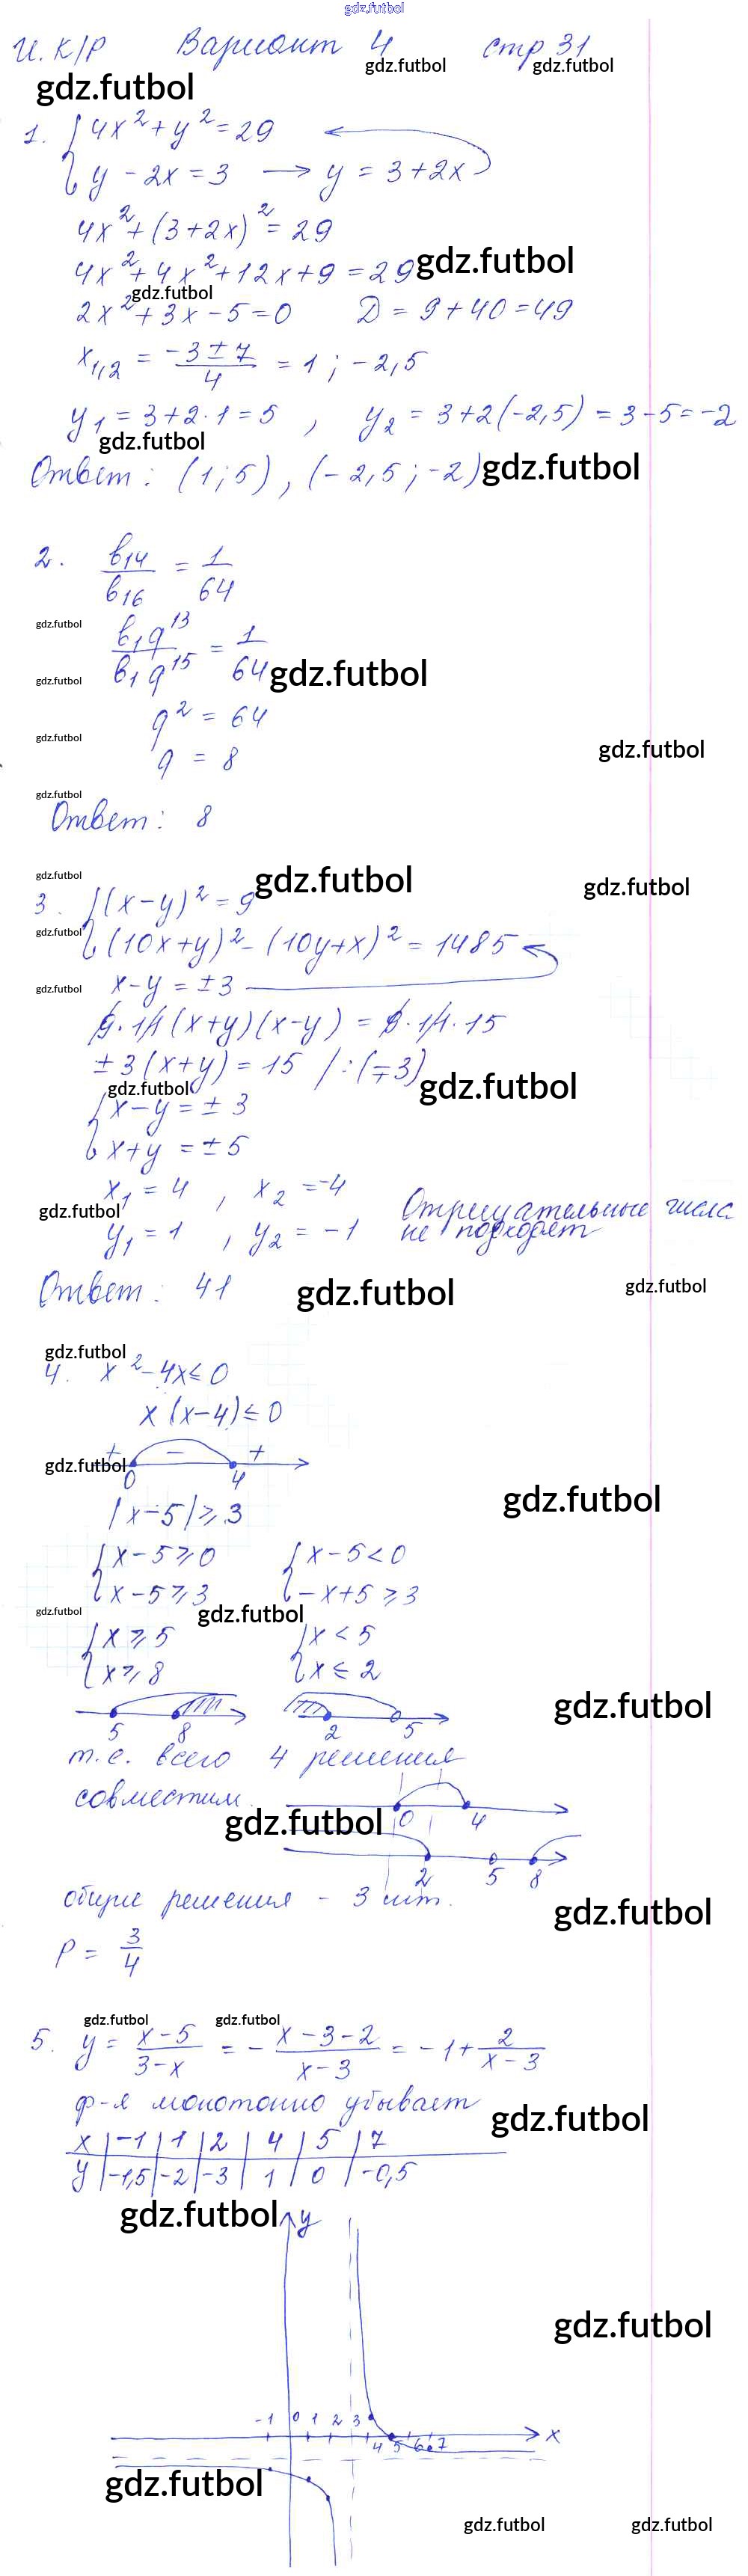 gdz.futbol
И. К/Р Вариант 4 стр 31
gdz.futbol gdz.futbol
gdz.futbol
1. { 4x² + y² = 29
y - 2x = 3 → y = 3 + 2x
4x² + (3 + 2x)² = 29
4x² + 4x² + 12x + 9 = 29 gdz.futbol
gdz.futbol
2x² + 3x - 5 = 0 D = 9 + 40 = 49
x₁,₂ = (-3 ± 7)/4 = 1 ; -2,5
y₁ = 3 + 2 · 1 = 5 , y₂ = 3 + 2(-2,5) = 3 - 5 = -2
gdz.futbol
Ответ: (1; 5), (-2,5; -2) gdz.futbol
2. b₁₄/b₁₆ = 1/64
gdz.futbol
b₁q¹³/b₁q¹⁵ = 1/64 gdz.futbol
gdz.futbol
q² = 64
gdz.futbol gdz.futbol
q = 8
gdz.futbol
Ответ: 8
gdz.futbol gdz.futbol gdz.futbol
3. { (x - y)² = 9
gdz.futbol
(10x + y)² - (10y + x)² = 1485
gdz.futbol
x - y = ±3
9 · 11 (x + y)(x - y) = 9 · 11 · 15
±3 (x + y) = 15 / : (∓3)
gdz.futbol gdz.futbol
{ x - y = ±3
x + y = ±5
x₁ = 4 , x₂ = -4 Отрицательные числа
gdz.futbol
y₁ = 1 , y₂ = -1 не подходят
Ответ: 41 gdz.futbol gdz.futbol
gdz.futbol
4. x² - 4x ≤ 0
x (x - 4) ≤ 0
+ - +
gdz.futbol
0 4
gdz.futbol
|x - 5| ≥ 3
{ x - 5 ≥ 0 { x - 5 < 0
x - 5 ≥ 3 -x + 5 ≥ 3
gdz.futbol gdz.futbol
{ x ≥ 5 { x < 5
x ≥ 8 x ≤ 2
gdz.futbol
5 8 2 5
т.е. всего 4 решения
совместим.
gdz.futbol 0 4
2 5 8
общие решения - 3 шт.
gdz.futbol
P = 3/4
gdz.futbol gdz.futbol
5. y = (x - 5)/(3 - x) = - (x - 3 - 2)/(x - 3) = -1 + 2/(x - 3)
ф-я монотонно убывает
gdz.futbol
x | -1 | 1 | 2 | 4 | 5 | 7
y | -1,5 | -2 | -3 | 1 | 0 | -0,5
gdz.futbol y
gdz.futbol
-1 0 1 2 3
x
4 5 6 7
gdz.futbol
gdz.futbol gdz.futbol